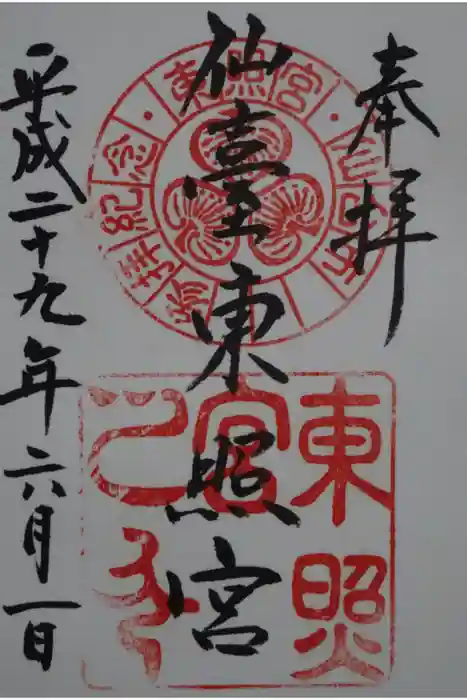 奉拝
仙臺東照宮
平成二十九年六月一日
東照宮
紀念
東照宮
之印